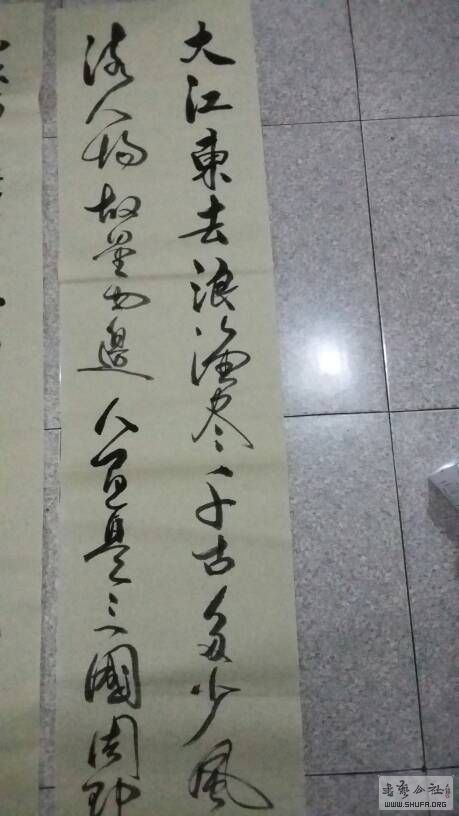 大江東去浪淘尽千古多少風
流人物故壘西邊人道是三國周郎
書藝公社
WWW.SHUFA.ORG